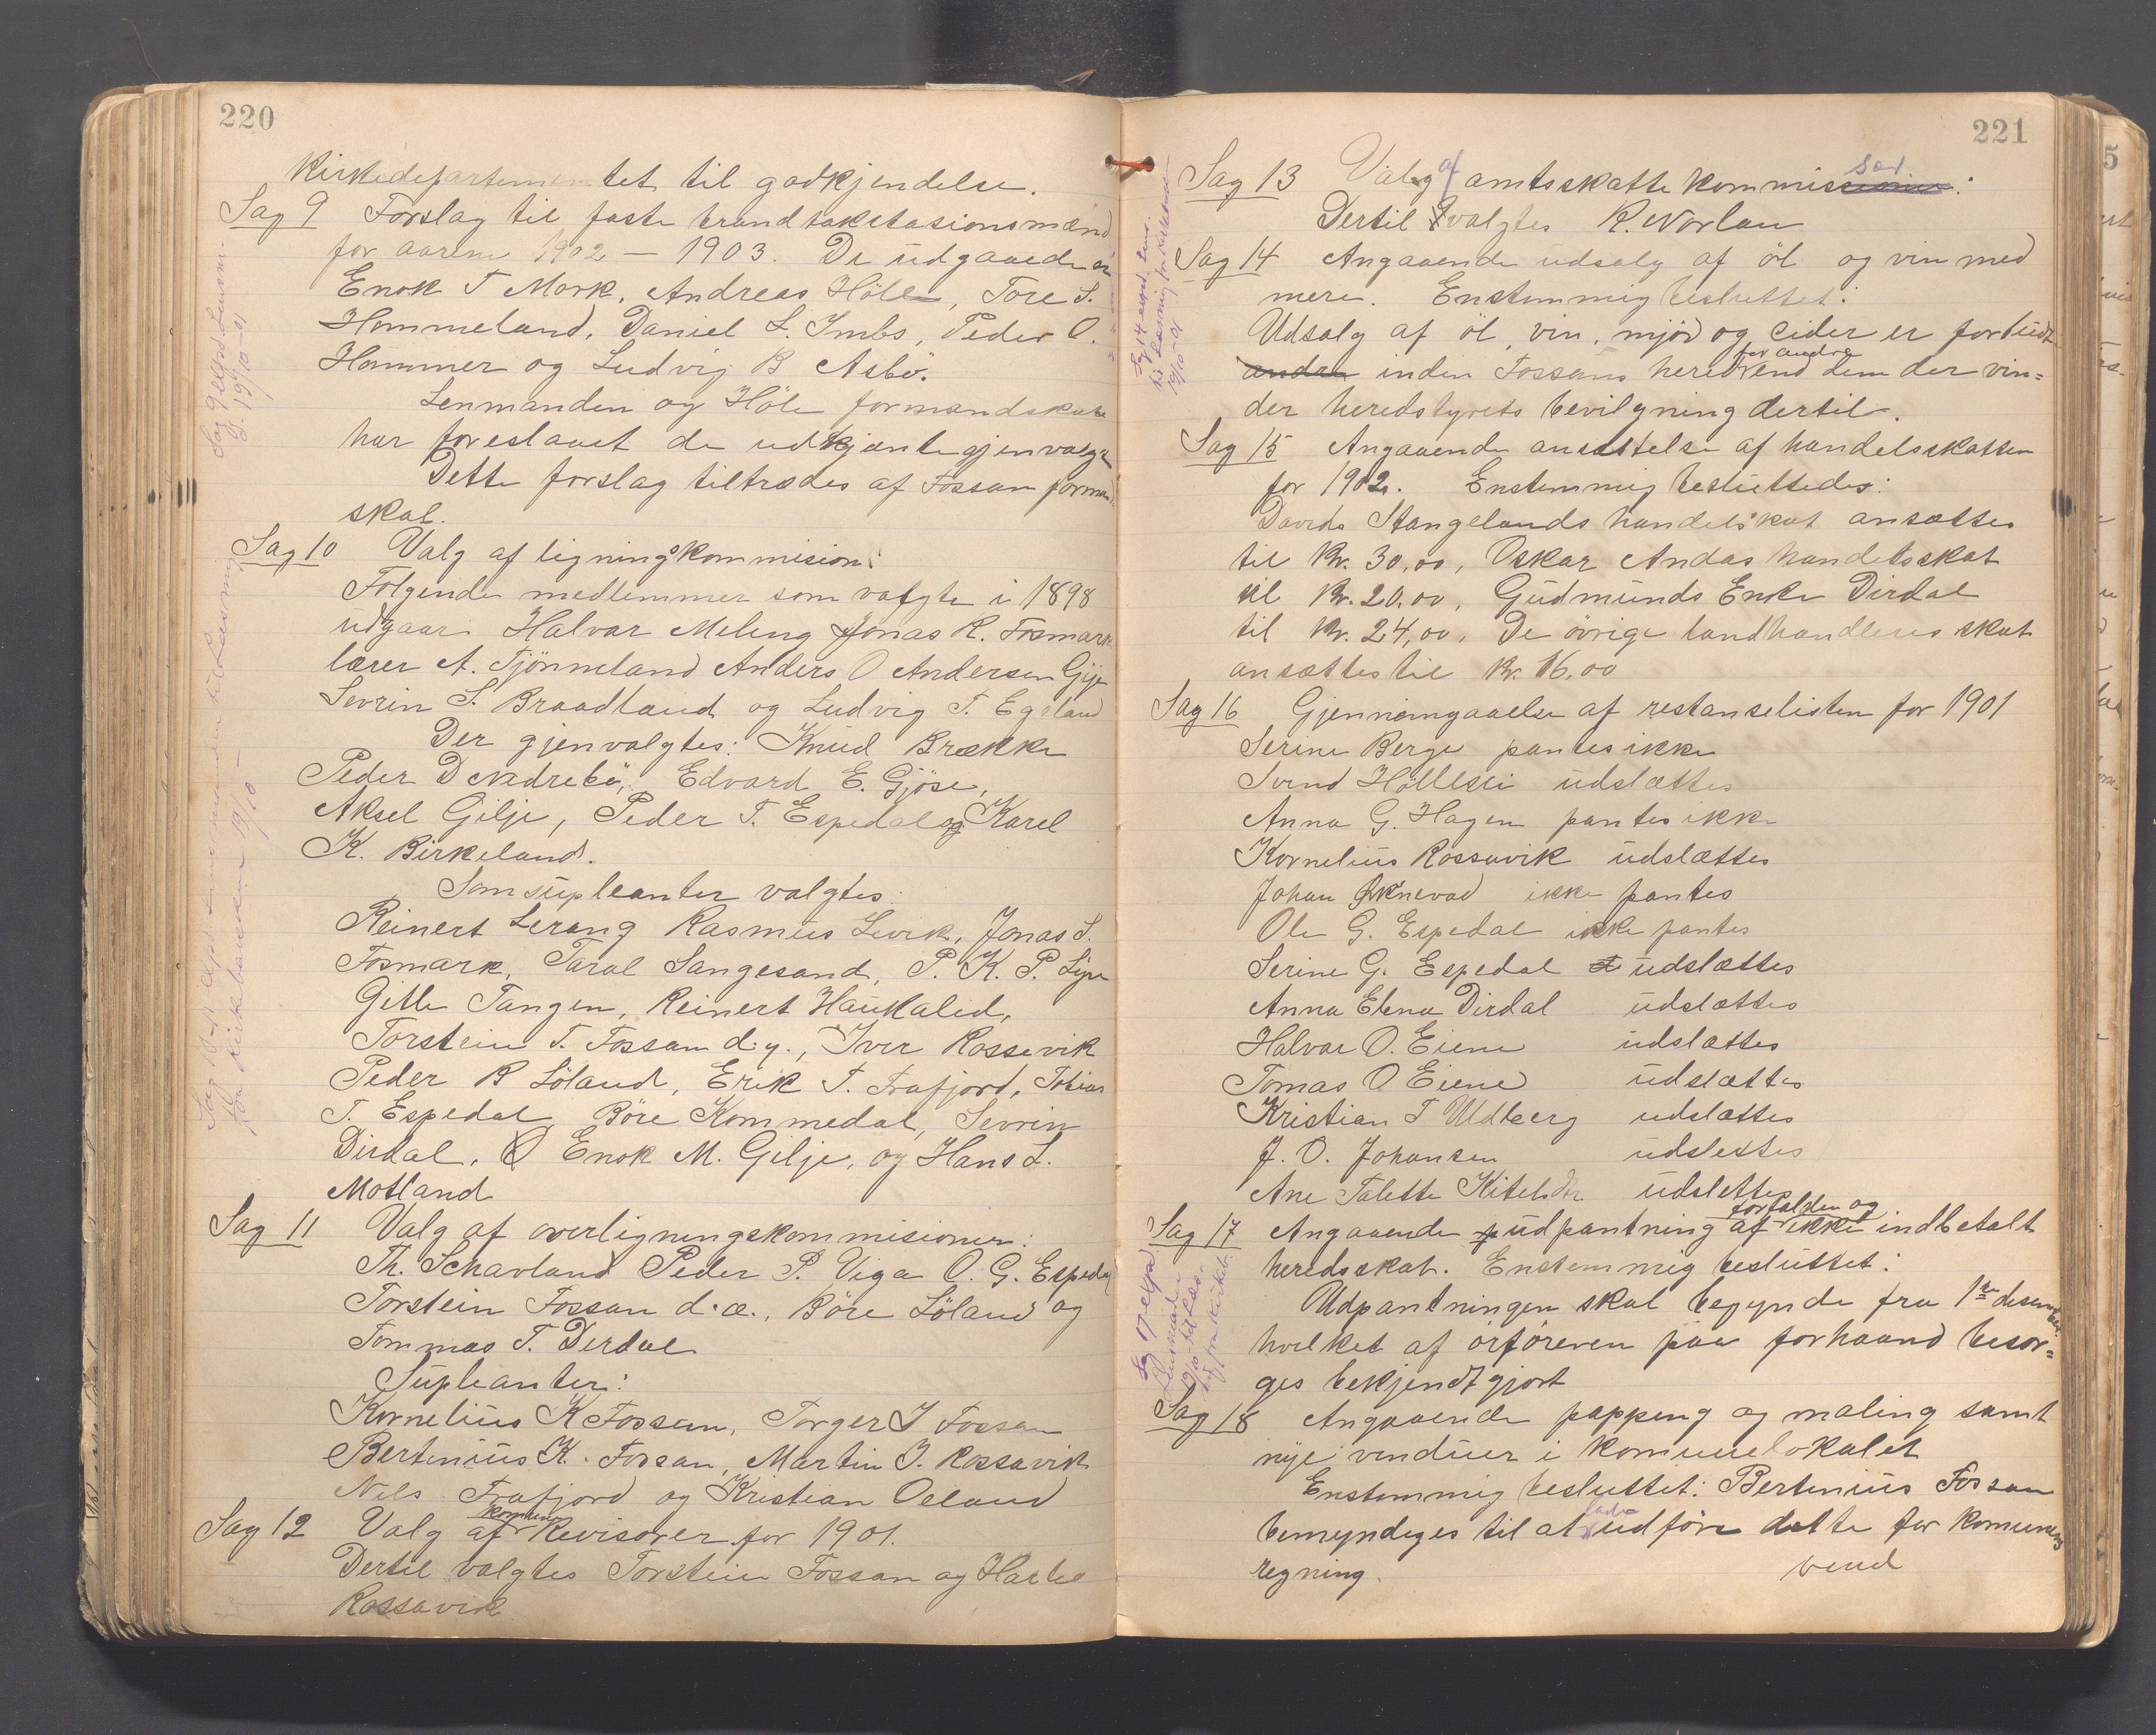 220
Kirkedepartementet til godkjendelse.
Sag 9 Forslag til faste brandtakstasionsmænd
for aarene 1902 – 1903. De udgaaede er
Enok T Mork, Andreas Höle, Tore S.
Hommeland, Daniel L. Imbs, Peder O.
Hammer og Ludvig B Asbö.
Lenmanden og Höle formandskab
har foreslaaet de udkjænte gjenvalgt
Dette forslag tiltrædes af Fossan forman
skab.
Sag 10 Valg af ligningskommision:
Fölgende medlemmer som valgte i 1898
udgaar: Halvar Meling Jonas R. Fosmark
lærer A. Tjönneland Anders O Andersen Gjje
Sevrin S. Braadland og Ludvig T. Egeland
Der gjenvalgtes: Knud Brække
Peder D Nedrebö, Edvard E. Gjöse,
Aksel Gilje, Peder T. Espedal og Karel
K. Birkeland.
Som supleanter valgtes:
Reinert Lerang Rasmus Levik, Jonas S.
Fosmark, Taral Sangesand, P. K. P. Lyse
Gitle Tangen, Reinert Haukalid,
Torstein T. Fossan d.y., Iver Rossevik
Peder R Löland, Erik T. Frafjord, Tobias
T. Espedal, Böre Kommedal, Sevrin
Dirdal, O Enok M. Gilje, og Hans L.
Motland
Sag 11 Valg af overligningskommisionen:
Th. Schavland Peder P. Viga O. G. Espedal
Torstein Fossan d.æ., Böre Löland og
Tommas T. Derdal
Supleanter:
Kornelius K Fossan, Torger J Fossan
Bertinius K. Fossan, Martin J. Rossavik
Nils Frafjord og Kristian Oeland
Sag 12 Valg af Revisorer for 1901.
Dertil valgtes Torstein Fossan og
Rossavik
221
Sag 13 Valg af amtsskattekommissionen sad:
Dertil valgtes R. Norlan
Sag 14 Angaaende udsalg af öl og vin med
mere. Enstemmig besluttet:
Udsalg af öl, vin, mjöd og cider er forbudt
andre inden Fossans hered for andre end dem der vin=
der heredstyrets bevilgning dertil.
Sag 15 Angaaende ansættelse af handelsskatten
for 1902. Enstemmig besluttedes:
Davids Stangelands handelskat ansættes
til Kr. 30,00, Oskar Andas handelsskat
til Kr. 20,00, Gudmunds Enke Dirdal
til Kr. 24,00, De övrige landhandleres skat
ansættes til Kr. 16,00
Sag 16 Gjennemgaaelse af restanselisten for 1901
Serine Berge pantes ikke
Svend Höllesli udslættes
Anna G. Hagen pantes ikke
Kornelius Rossavik udslættes
Johan Øknevad ikke pantes
Ole G. Espedal ikke pantes
Serine G. Espedal udslættes
Anna Elena Dirdal udslættes
Halvar O. Eiene udslættes
Tomas O Eiene udslættes
Kristian T Udberg udslættes
J. O. Johansen udslettes
Ane Talette Kitelsdtr udslettes
Sag 17 Angaaende udpantning af forfalden og ikke indbetalt
heredsskat. Enstemmig besluttet:
Udpantningen skal begynde fra 1ste desember
hvilket af orföreren paa forhaand besör=
ges bekjendtgjort
Sag 18 Angaaende papping og maling samt
nye vinduer i komunelokalet
Enstemmig besluttet: Bertinius Fossan
bemyndiges til at lade udföre dette for komunens
regning.
vend